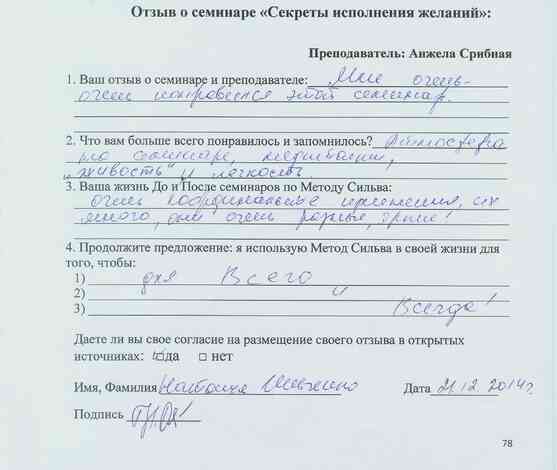 Отзыв о семинаре «Секреты исполнения желаний»:
Преподаватель: Анжела Срибная
1. Ваш отзыв о семинаре и преподавателе: Мне очень-
очень понравился этот семинар.
2. Что вам больше всего понравилось и запомнилось? Атмосфера
на семинаре, медитации,
"живость" и легкость.
3. Ваша жизнь До и После семинаров по Методу Сильва:
очень кардинальные изменения, их
много, они очень разные, яркие!
4. Продолжите предложение: я использую Метод Сильва в своей жизни для
того, чтобы:
1) для Всего
2) и
3) Всегда!
Даете ли вы свое согласие на размещение своего отзыва в открытых
источниках: да □ нет
Имя, Фамилия Наталия Шевченко Дата 21.12.2014г.
Подпись
78